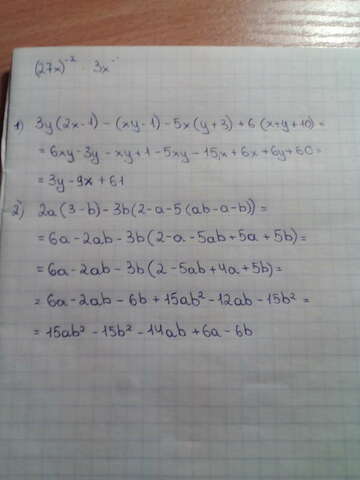 (27x)⁻² · 3x
1) 3y(2x-1) - (xy-1) - 5x(y+3) + 6(x+y+10) =
= 6xy - 3y - xy + 1 - 5xy - 15x + 6x + 6y + 60 =
= 3y - 9x + 61
2) 2a(3-b) - 3b(2-a-5(ab-a-b)) =
= 6a - 2ab - 3b(2-a-5ab+5a+5b) =
= 6a - 2ab - 3b(2-5ab+4a+5b) =
= 6a - 2ab - 6b + 15ab² - 12ab - 15b² =
= 15ab² - 15b² - 14ab + 6a - 6b